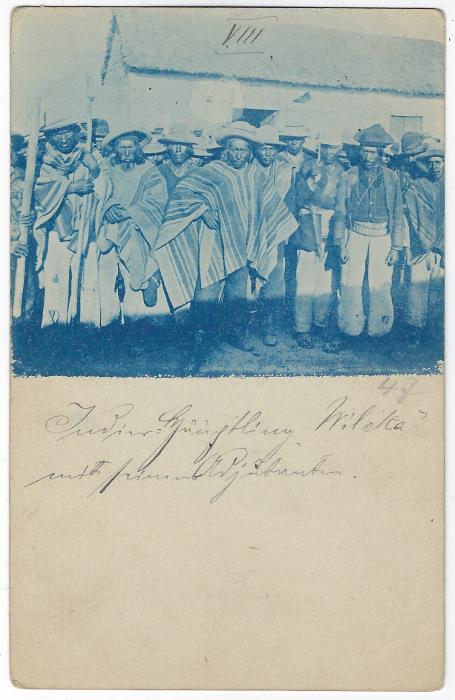 VIII
47
Indier-Häuptling „Wilcka“
mit seinen Adjutanten.